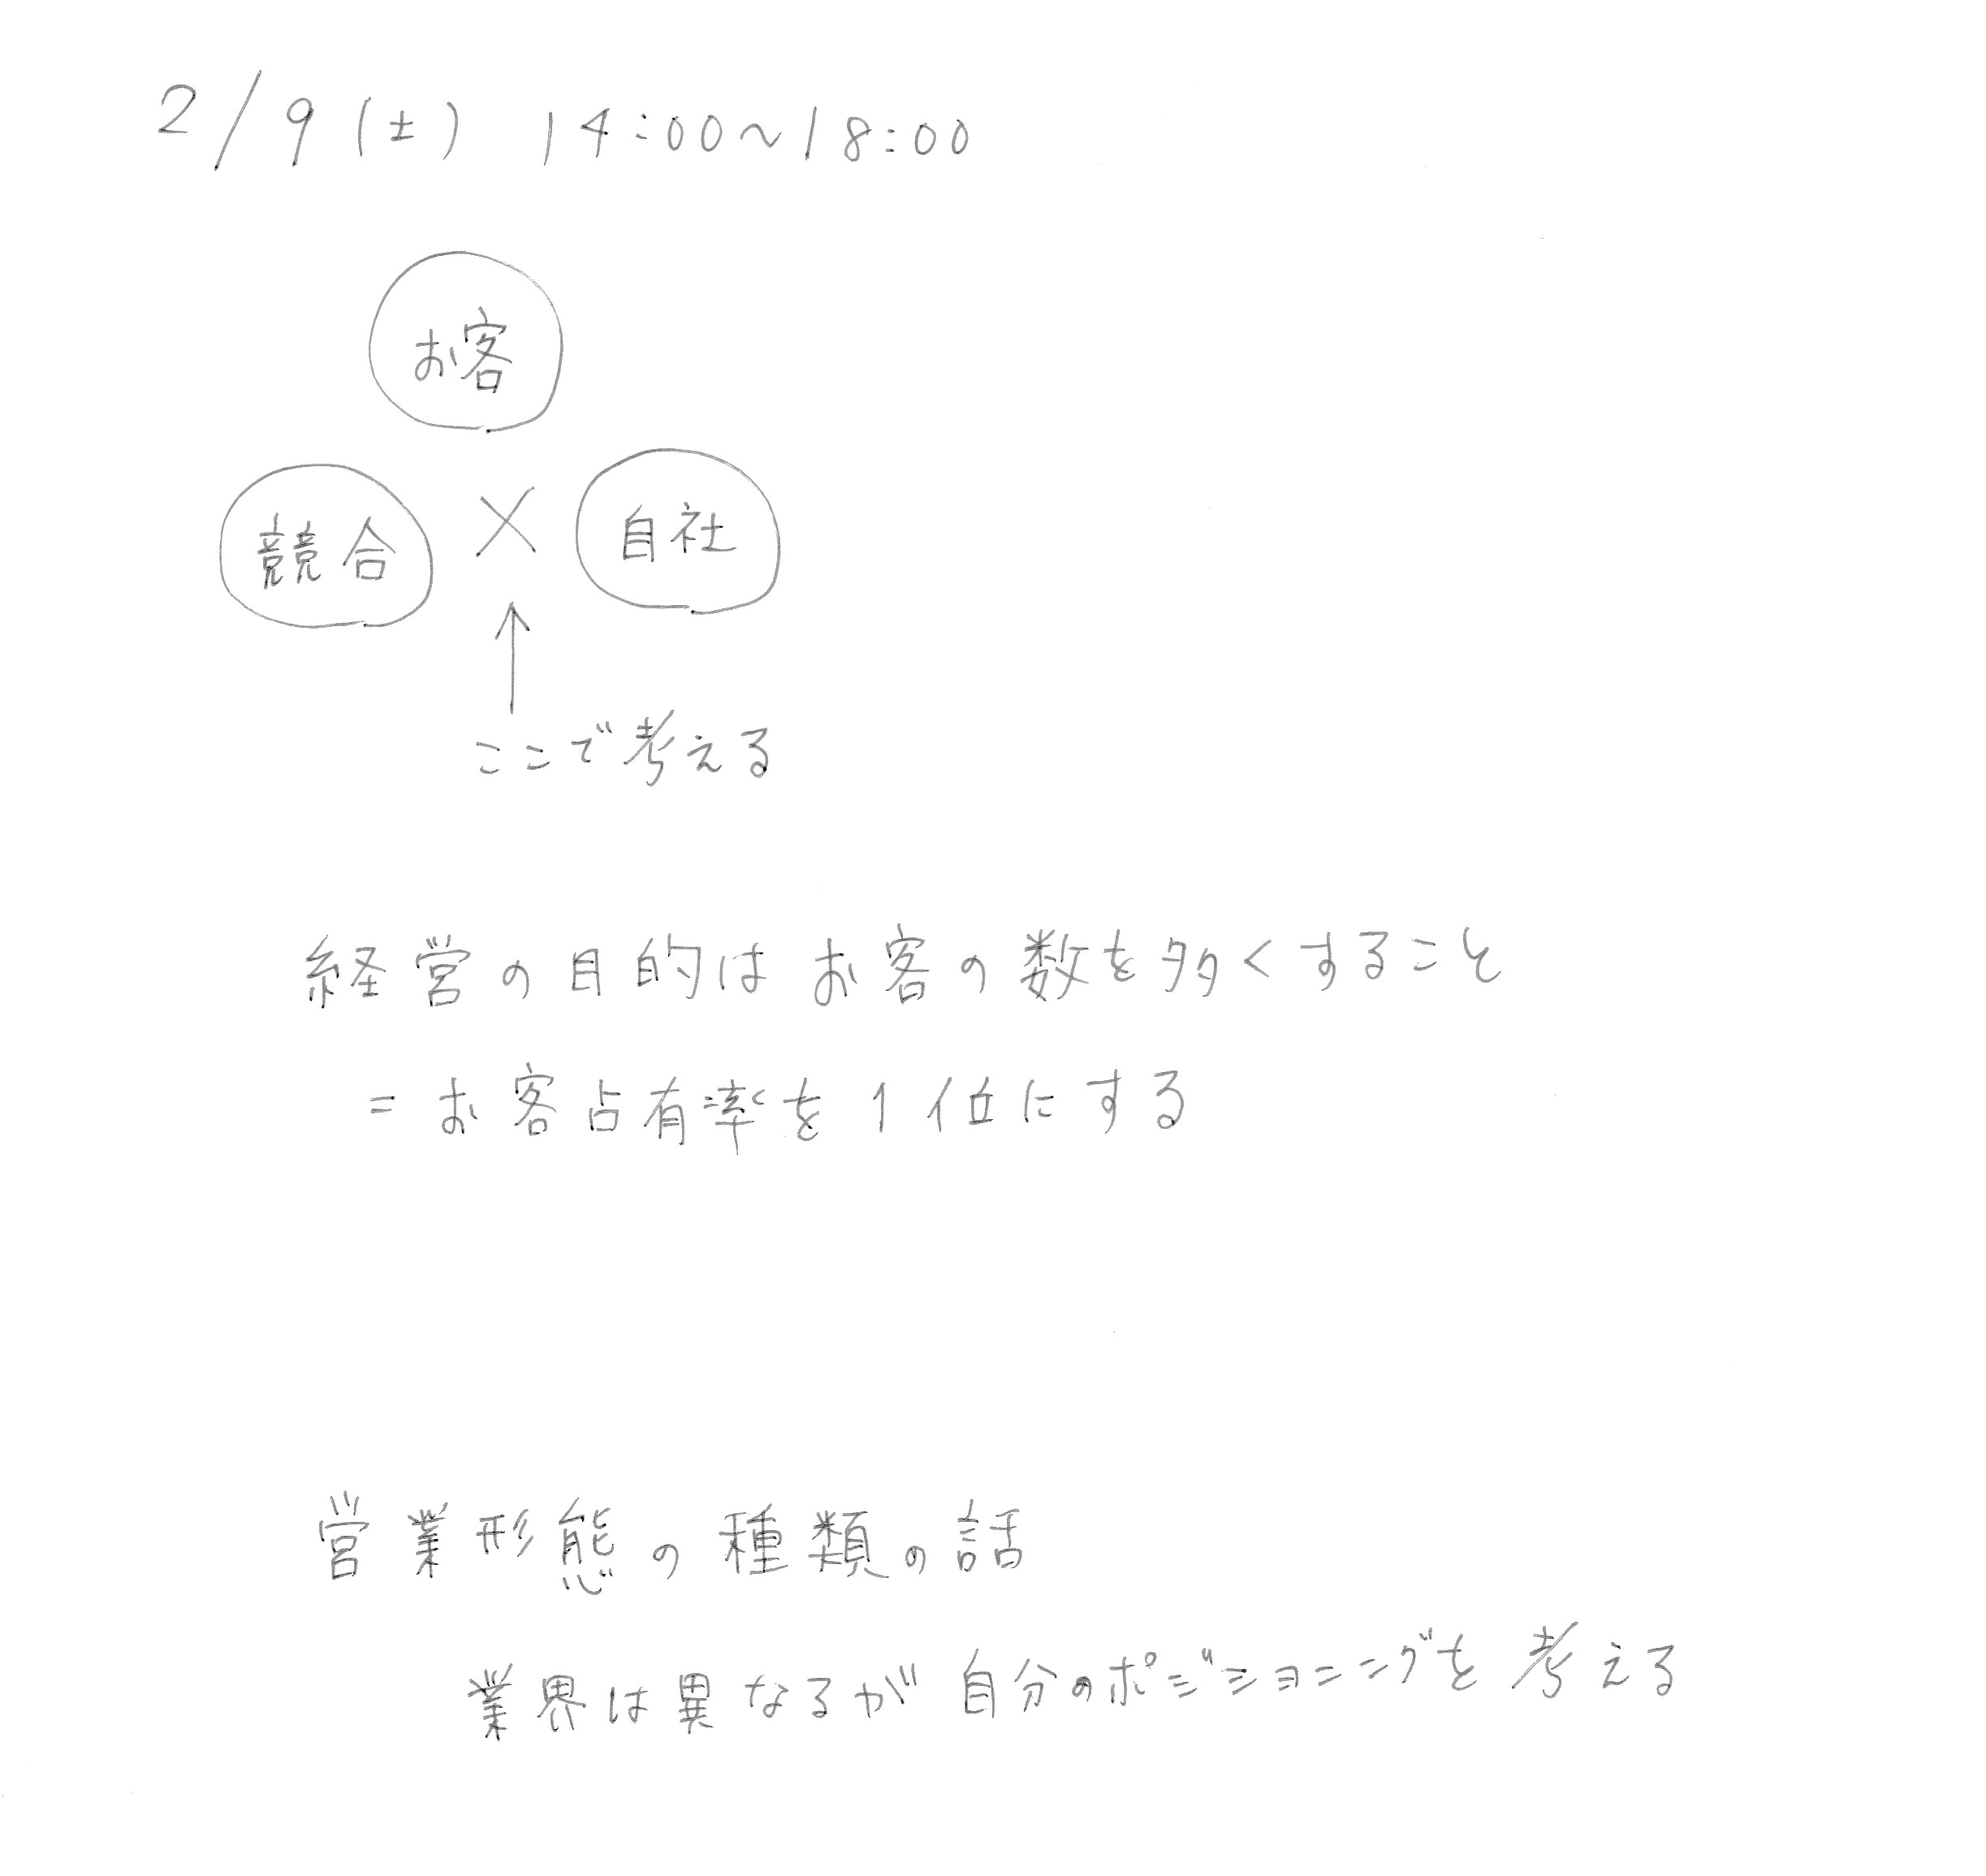 2/9(土) 14:00~18:00
お客
競合 × 自社
ここで考える
経営の目的はお客の数を多くすること
=お客占有率を1位にする
営業形態の種類の話
業界は異なるが自分のポジショニングを考える